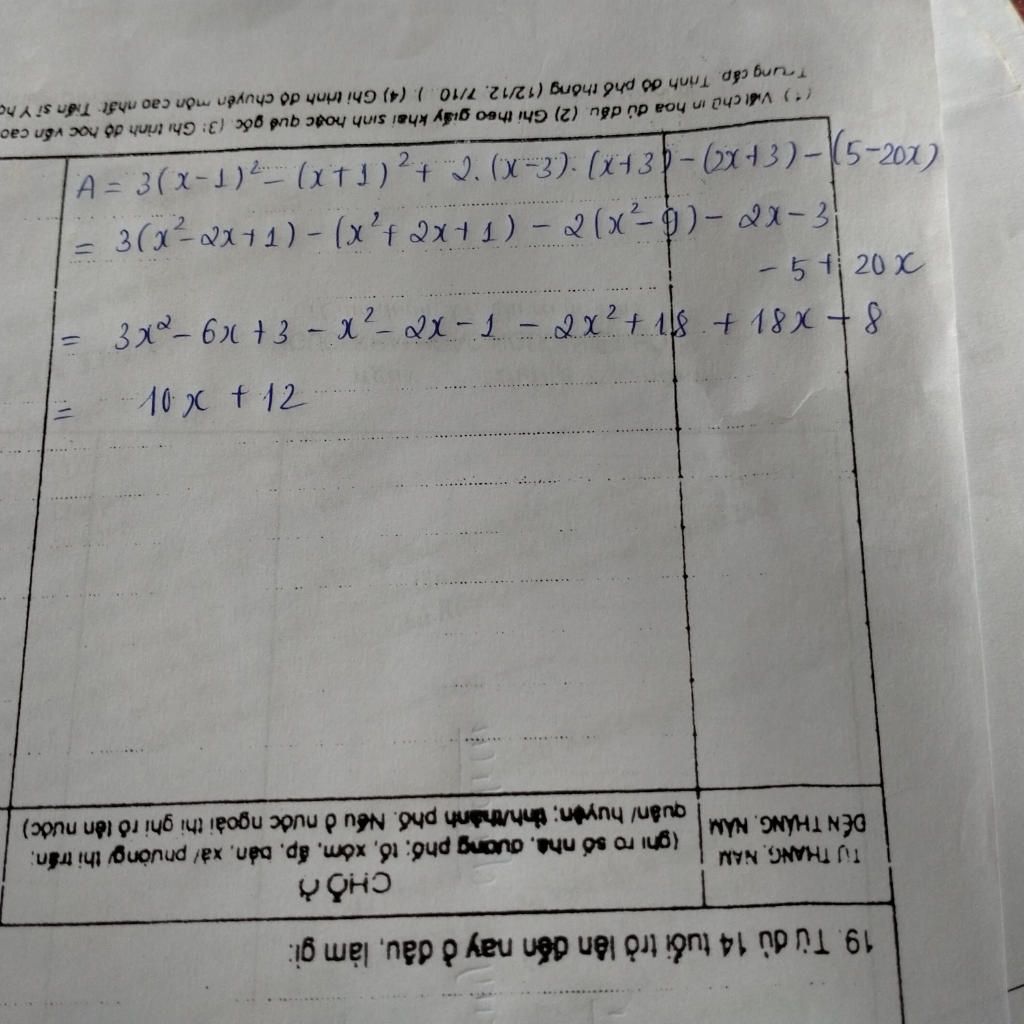 A = 3(x-1)² - (x+1)² + 2.(x-3).(x+3) - (2x+3) - (5-20x)
= 3(x²-2x+1) - (x²+2x+1) - 2(x²-9) - 2x - 3
- 5 + 20x
= 3x² - 6x + 3 - x² - 2x - 1 - 2x² + 18 + 18x - 8
= 10x + 12
19. Từ đủ 14 tuổi trở lên đến nay ở đâu, làm gì:
TỪ THÁNG, NĂM
ĐẾN THÁNG, NĂM
CHỖ Ở
(ghi rõ số nhà, đường phố; tổ, xóm, ấp, bản, xã/ phường/ thị trấn;
quận/ huyện; tỉnh/thành phố. Nếu ở nước ngoài thì ghi rõ tên nước)
(*) Viết chữ in hoa đủ dấu. (2) Ghi theo giấy khai sinh hoặc quê gốc. (3) Ghi trình độ học vấn cao
Trung cấp. Trình độ phổ thông (12/12, 7/10...). (4) Ghi trình độ chuyên môn cao nhất: Tiến sĩ Y h